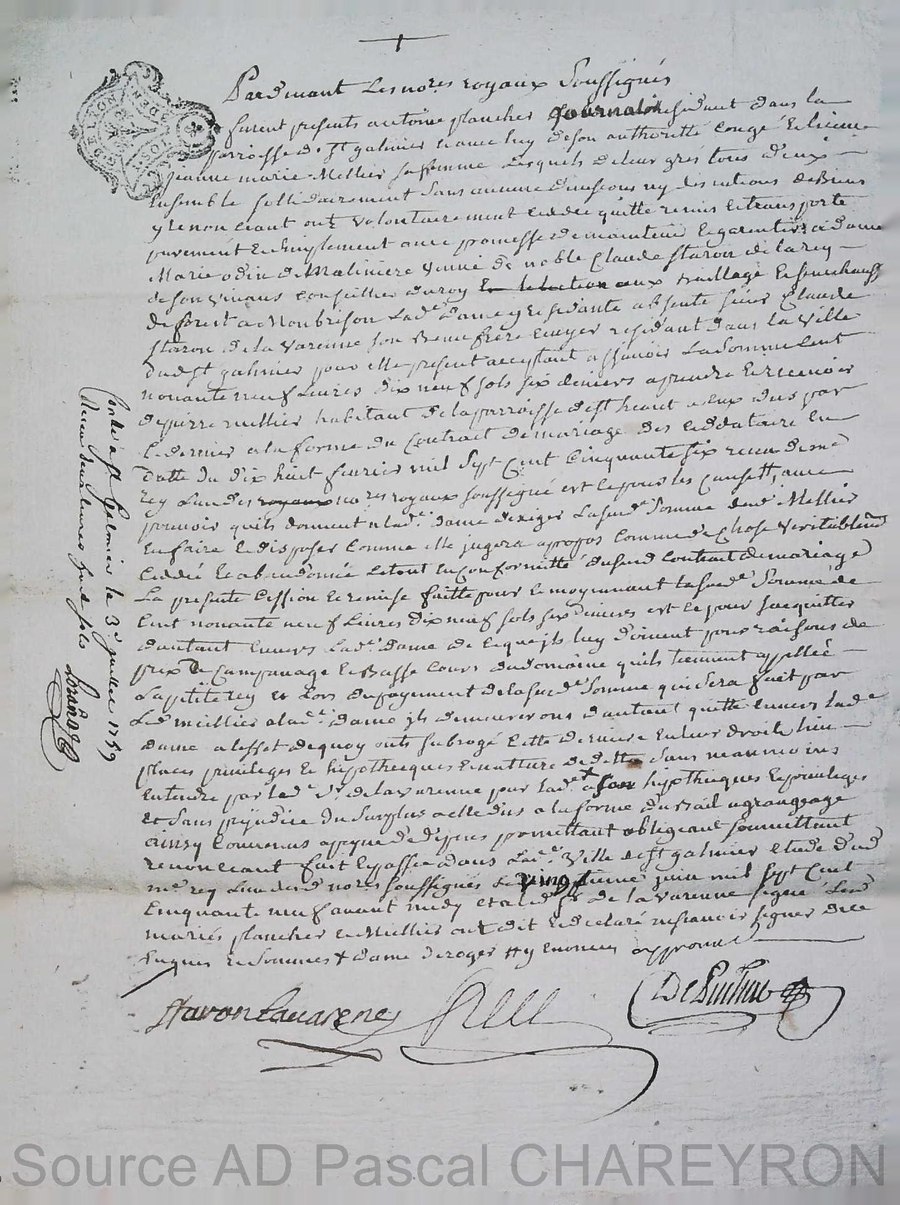 Pardevant Les nores royaux Soussignés
furent presents antoine plancher Journalier residant dans la
parroisse de St galmier et avec luy de son authorité Congé et licence
jeanne marie Mellier sa femme Lesquels de leur gré tous deux
Ensemble sollidairement sans aucune division ny discutions de Biens
y renoncant ont Volontairement Ceddé quitté remis et transporté
purement et simplement avec promesse de maintenir et garentir a dame
Marie odin de Maliniere veuve de noble Claude Staron de la rey
de son vivans Conseiller du roy aux Baillage et senechaussé
de forest a Monbrison Lade Dame y residante absente sieur Claude
Staron de la Varenne son Beau frere Ecuyer residant dans la Ville
dud St galmier pour elle present acceptant assavoir La somme Cent
nonante neuf Livres dix neuf sols six deniers a prendre et recevoir
de pierre mellier habitant de la parroisse de St heant a eux dus par
le dernier a la forme du Contrait de mariage des Ceddataire en
Datte du dix huit fevrier mil Sept Cent Cinquante six recu de me
rey L'un des royaux nores royaux soussigné est ce pour les Causes avec
pouvoir quils donnent a lade dame d'exiger La sude Somme dud Mellier
en faire et disposer Comme elle jugera a propos Comme de Chose Veritablement
Ceddé et abandonnée le tout en Conformitté dusud Contrait de mariage
La presente Cession et remise faitte pour et moyennant la sude Somme de
Cent nonante neuf Livres dix neuf sols six deniers est ce pour sacquitter
dautant envers Lade dame de ce que ils luy doivent pour raisons de
prix de Campanage et Basse Cours du domaine quils tiennent appellée
La petite rey et Lors du payement de la sude Somme qui sera fait par
Led meillier a lade dame ils demeureront dautant quitte envers lade
dame a l'effet de quoy ont subrogé Cette derniere en leur droits lieu
places privileges et hypothecques et nature de dette sans neanmoins
entendre par led Sr de la Varenne par lade + a son hypothecques et privileges
et sans prejudice du surplus a elle dus a la forme du Bail a grangeage
ainsy Convenus promettant obligeant soumettant
renoncant fait et passée dans lade Ville de St galmier etude dud
me rey L'un desd nores soussignés Le vingt juin mil Sept Cent
Cinquante neuf avant midy et a led Sr de la Varenne signé Lesd
mariés plancher et Mellier ont dit et declaré ne scavoir signer de ce
Enquis et sommés + dame deroger approuvé
Staron Lavarene Rey
Conlé a St Galmier le 3e juillet 1759
Recu douze sols